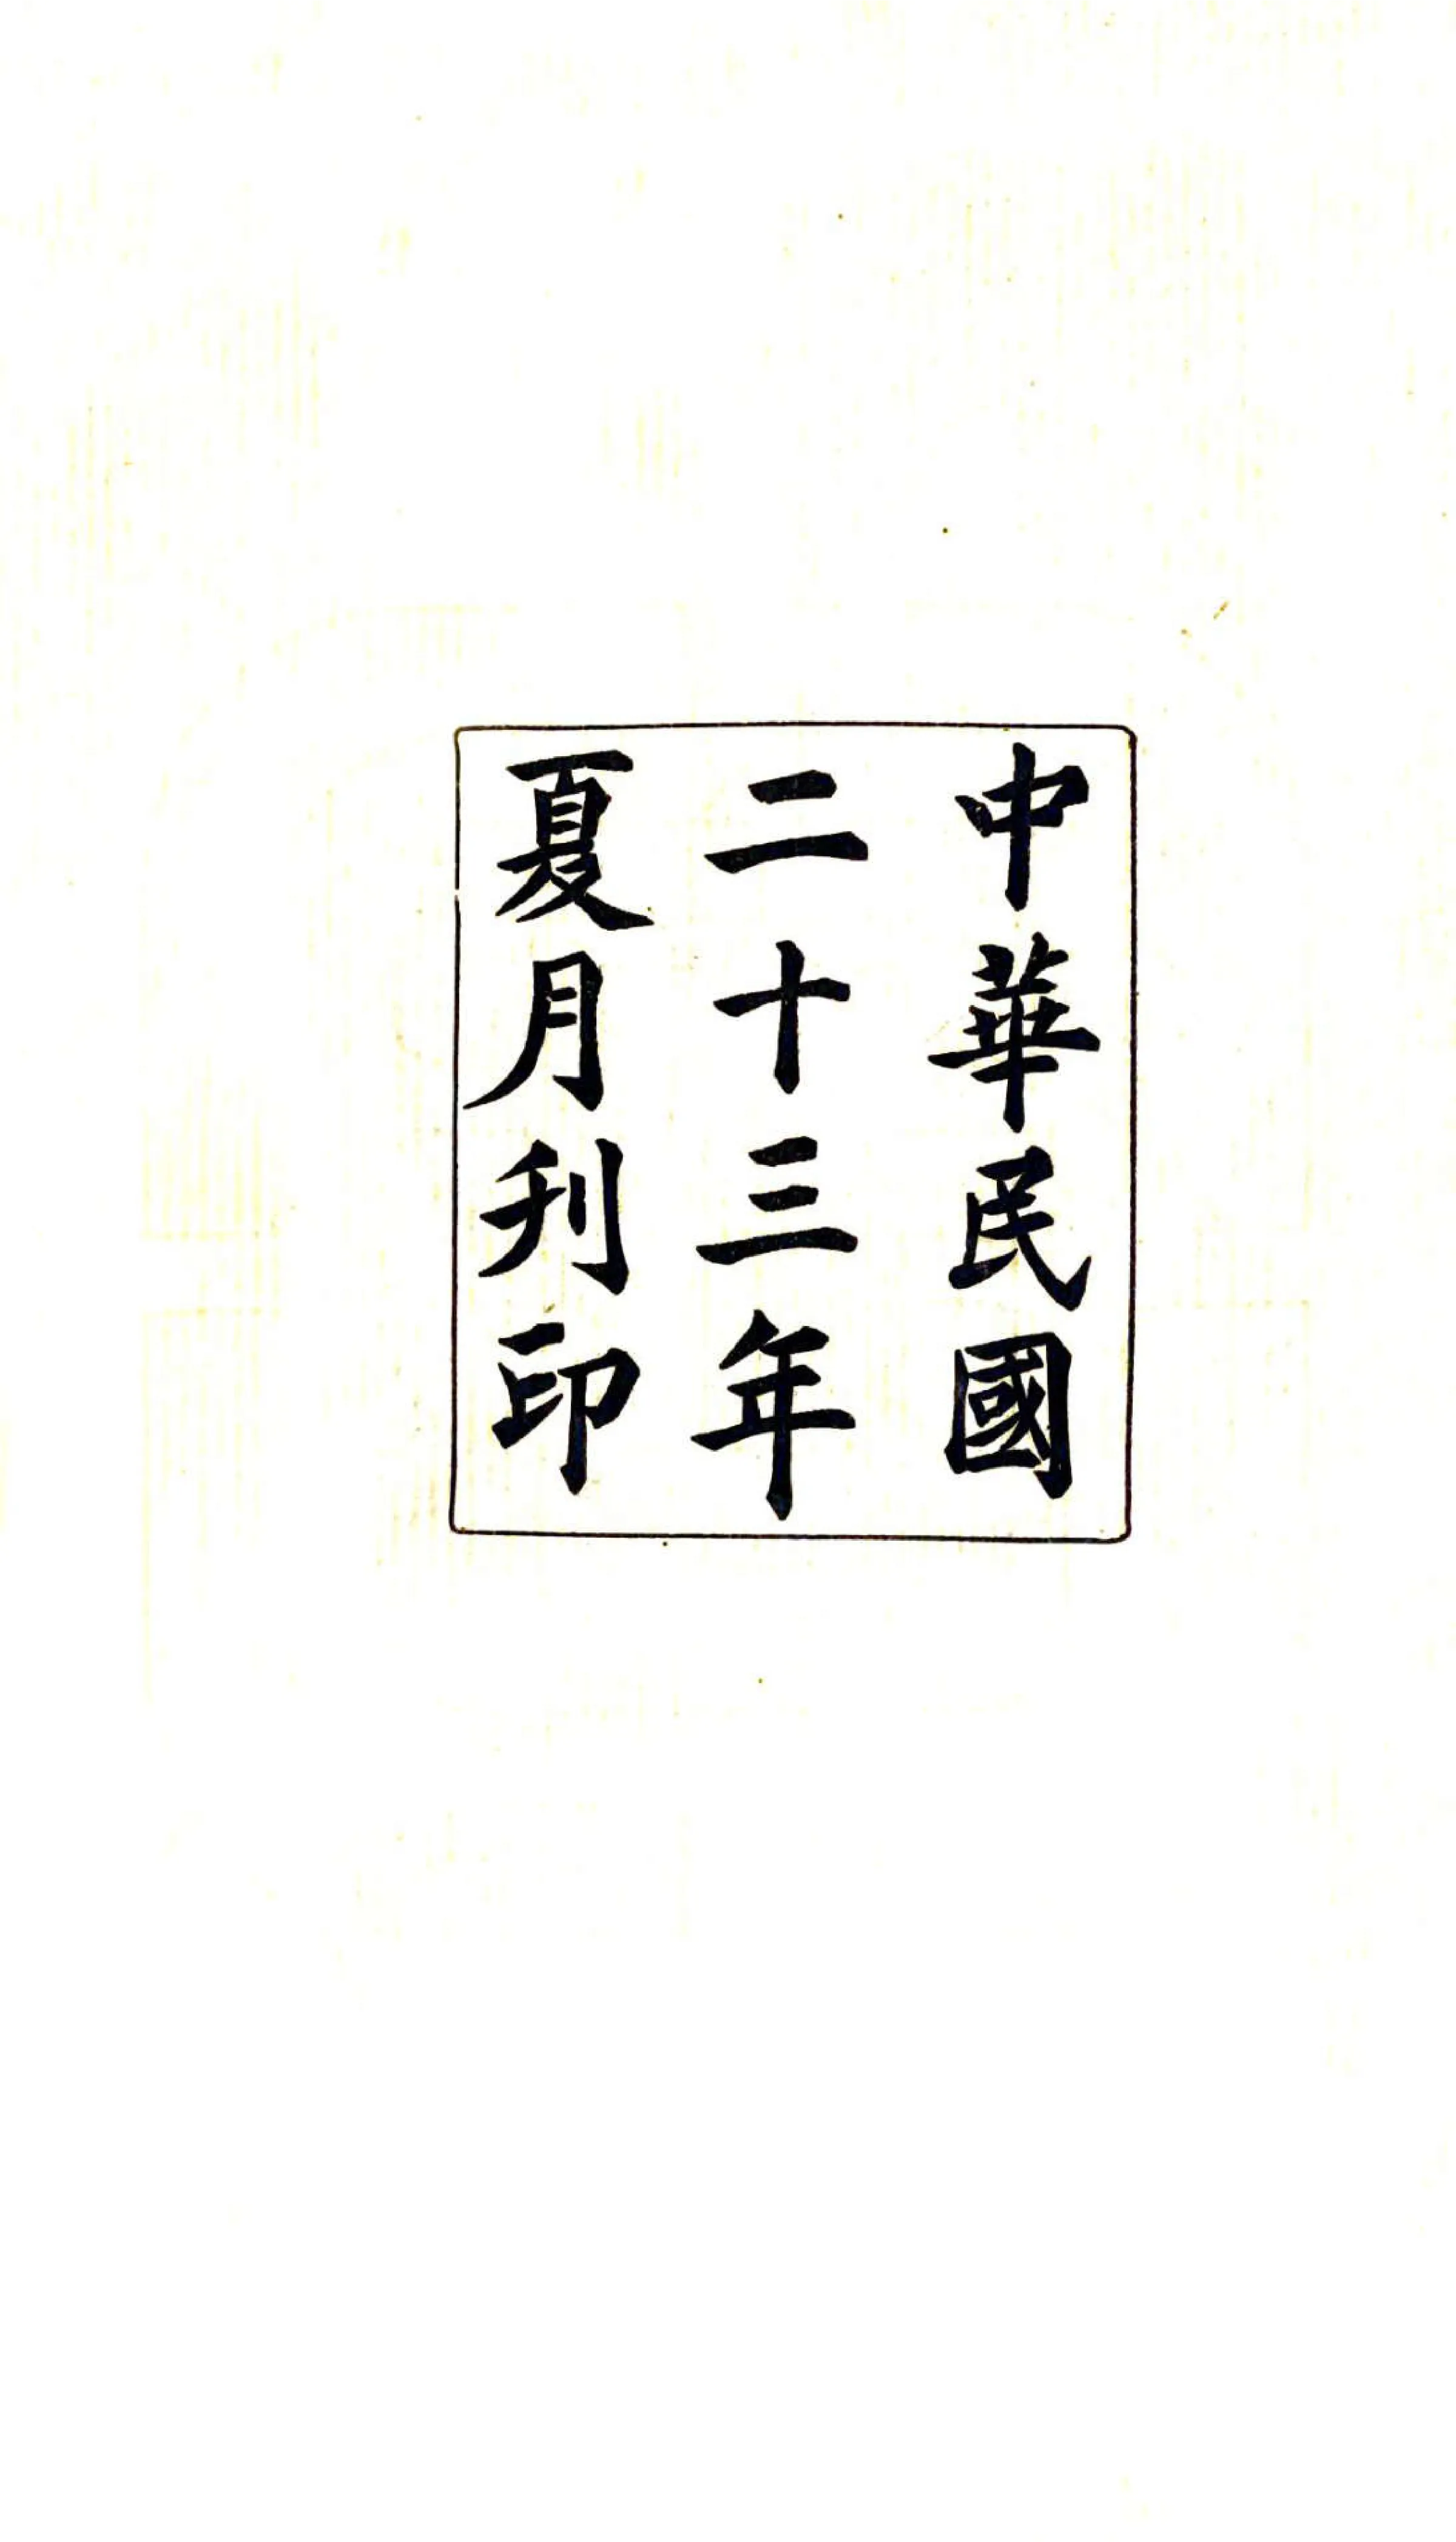 中華民國
二十三年
夏月刊印